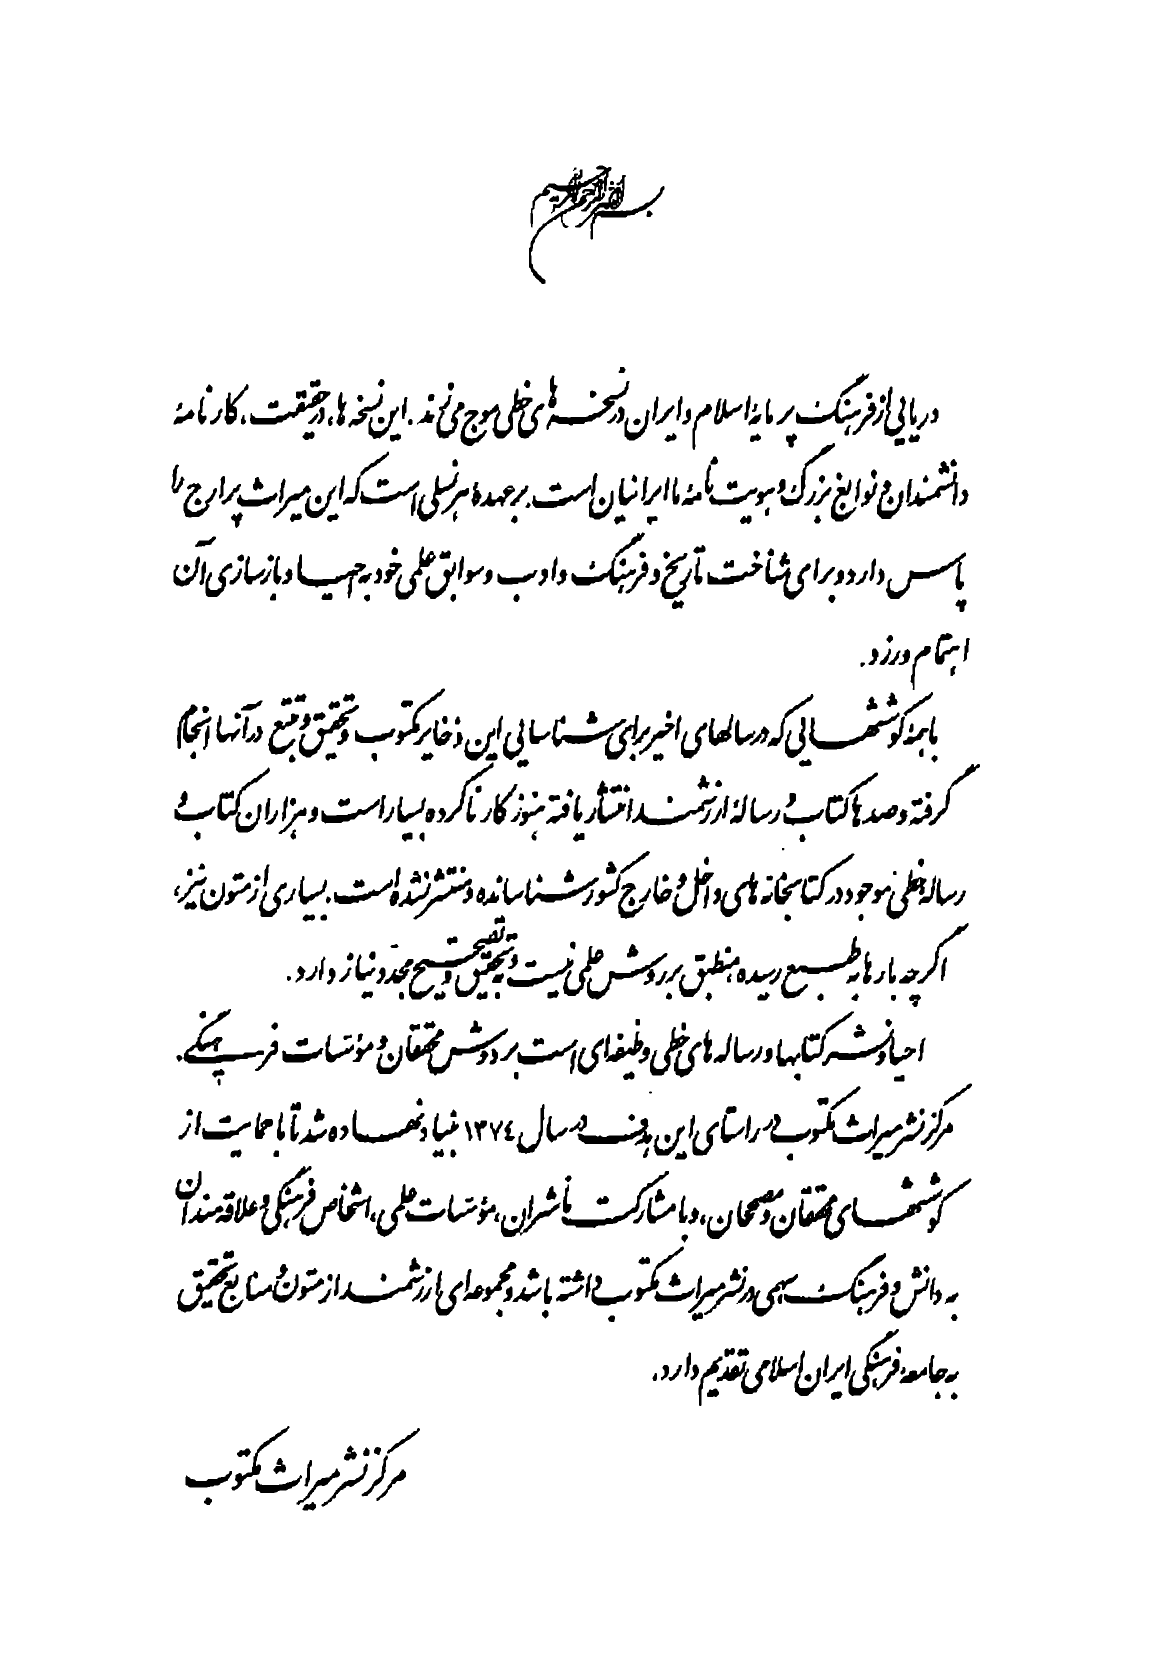 بسم الله الرحمن الرحیم
دریایی از فرهنگ پر مایهٔ اسلام و ایران در نسخه های خطی موج می زند. این نسخه ها، در حقیقت، کارنامهٔ
دانشمندان و نوابغ بزرگ و هویت نامهٔ ما ایرانیان است. بر عهدهٔ هر نسلی است که این میراث پر ارج را
پاس دارد و برای شناخت تاریخ و فرهنگ و ادب و سوابق علمی خود به احیاء و بازسازی آن
اهتمام ورزد.
با همهٔ کوششهایی که در سالهای اخیر برای شناسایی این ذخایر مکتوب و تحقیق و تتبع در آنها انجام
گرفته و صدها کتاب و رسالهٔ ارزشمند انتشار یافته هنوز کار ناکرده بسیار است و هزاران کتاب و
رسالهٔ خطی موجود در کتابخانه های داخل و خارج کشور شناسانده و منتشر نشده است. بسیاری از متون نیز،
اگرچه بارها به طبع رسیده، منطبق بر روش علمی نیست و به تحقیق و تصحیح مجدّد نیاز دارد.
احیا و نشر کتابها و رساله های خطی وظیفه ای است بر دوش محققان و مؤسّسات فرهنگی.
مرکز نشر میراث مکتوب در راستای این هدف در سال ۱۳۷۴ بنیاد نهاده شد تا با حمایت از
کوششهای محققان و مصححان، و با مشارکت ناشران، مؤسّسات علمی، اشخاص فرهنگی و علاقه مندان
به دانش و فرهنگ سهمی در نشر میراث مکتوب داشته باشد و مجموعه ای ارزشمند از متون و منابع تحقیق
به جامعهٔ فرهنگی ایران اسلامی تقدیم دارد.
مرکز نشر میراث مکتوب